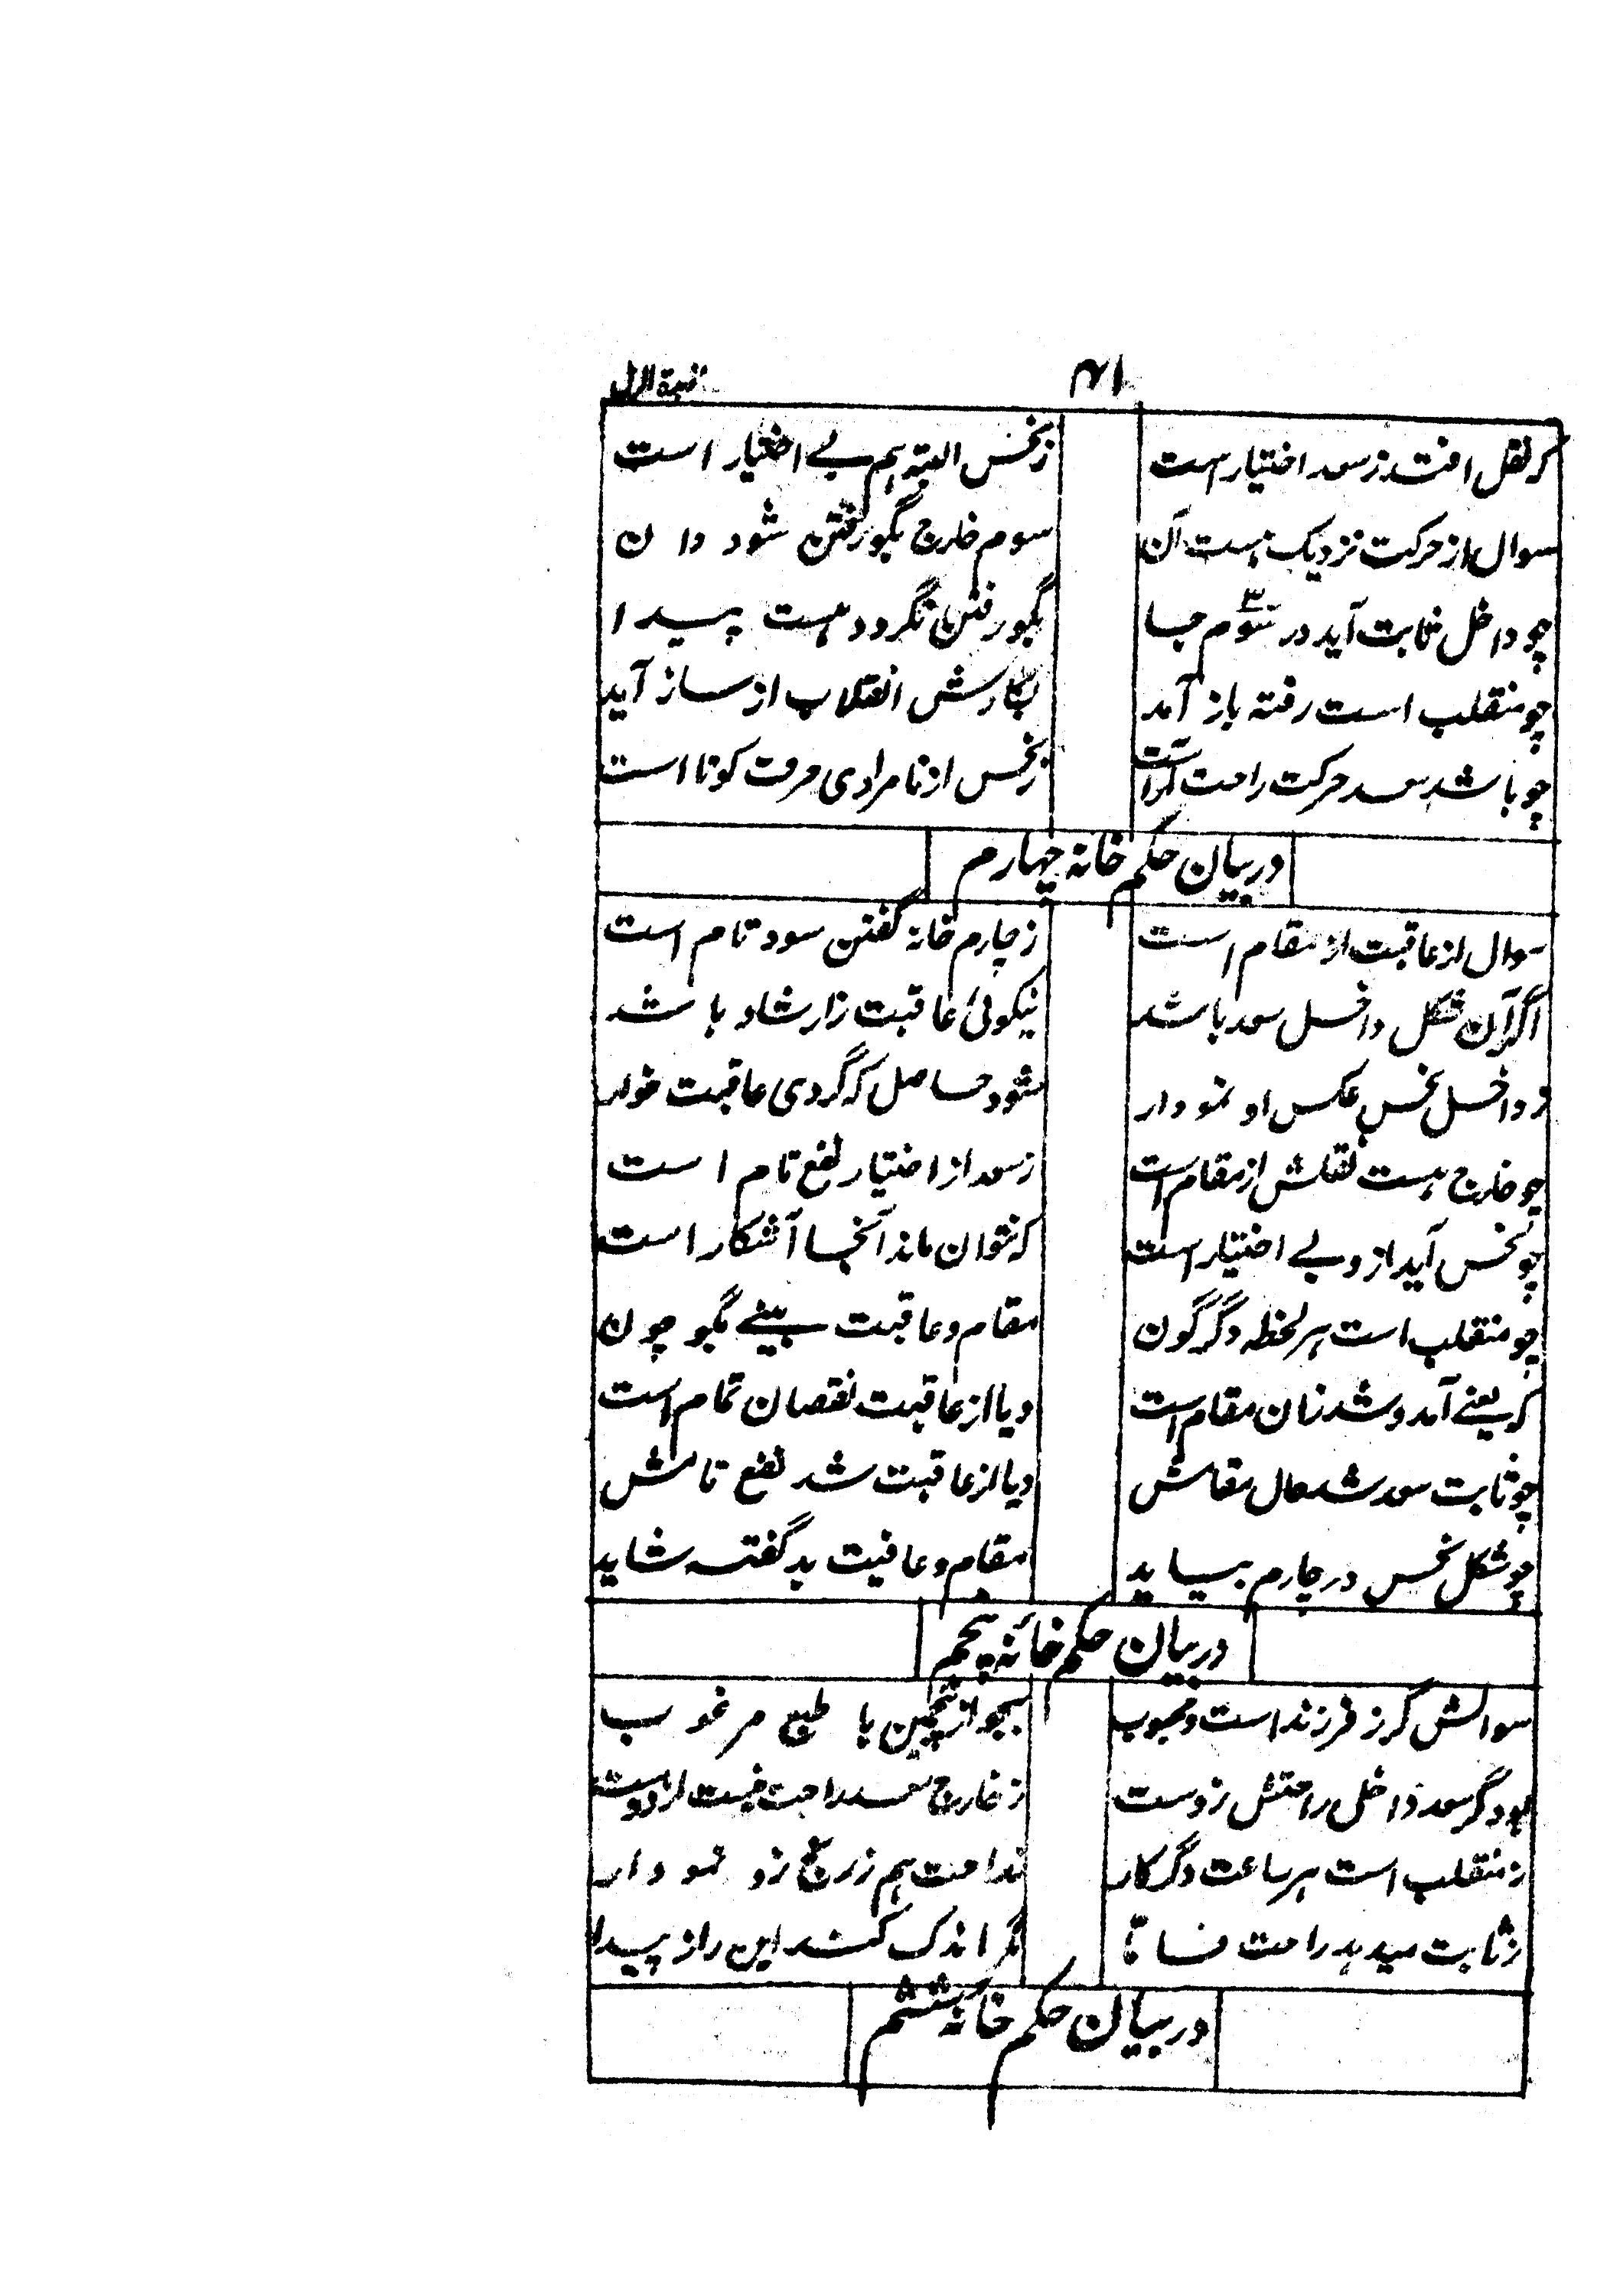 ۴۱
کر نقل افتد ز سعد اختیار است ز نحس البته هم بے اختیار است
سوال از حرکت نزدیک هست آن سوم خارج بگو رفتن شود دان
چو داخل ثابت آید در سوم جا بگو رفتن نگردد هست پیدا
چو منقلب است رفته باز آمد بکارش انقلاب از ساز آید
چو باشد سعد حرکت راحت آراست ز نحس از نامرادی حرف کوتا است
در بیان حکم خانه چهارم
سوال از عاقبت از مقام است ز چارم خانه گفتن سود تام است
اگر آن شکل داخل سعد باشد نیکوئی عاقبت زار شاد باشد
و داخل نحس عکس او نمودار شود حاصل که گردی عاقبت خوار
چو خارج هست نقلش از مقام است ز سعد از اختیار نفع تام است
چو نحس آید ازو بے اختیار است که نتوان ماند آنجا آشکار است
چو منقلب است هر لحظه دگرگون مقام و عاقبت بینے بگو چون
که یعنے آمد و شد زان مقام است و یا از عاقبت نقصان تمام است
چو ثابت سعد شد حال مقامش و یا از عاقبت شد نفع تامش
چو شکل نحس در چارم بیاید مقام و عاقبت بد گفته شاید
در بیان حکم خانه پنجم
سوالش گر ز فرزند است و محبوب بجو از پنجمین با طبع مرغوب
بود گر سعد داخل راحتش زوست ز خارج سعد راحت نیست از دوست
ز منقلب است هر ساعت دگر کار ندامت هم ز رنج زو نمودار
ز ثابت میدهد راحت مگر اندک کند این راز پیدا
در بیان حکم خانه ششم